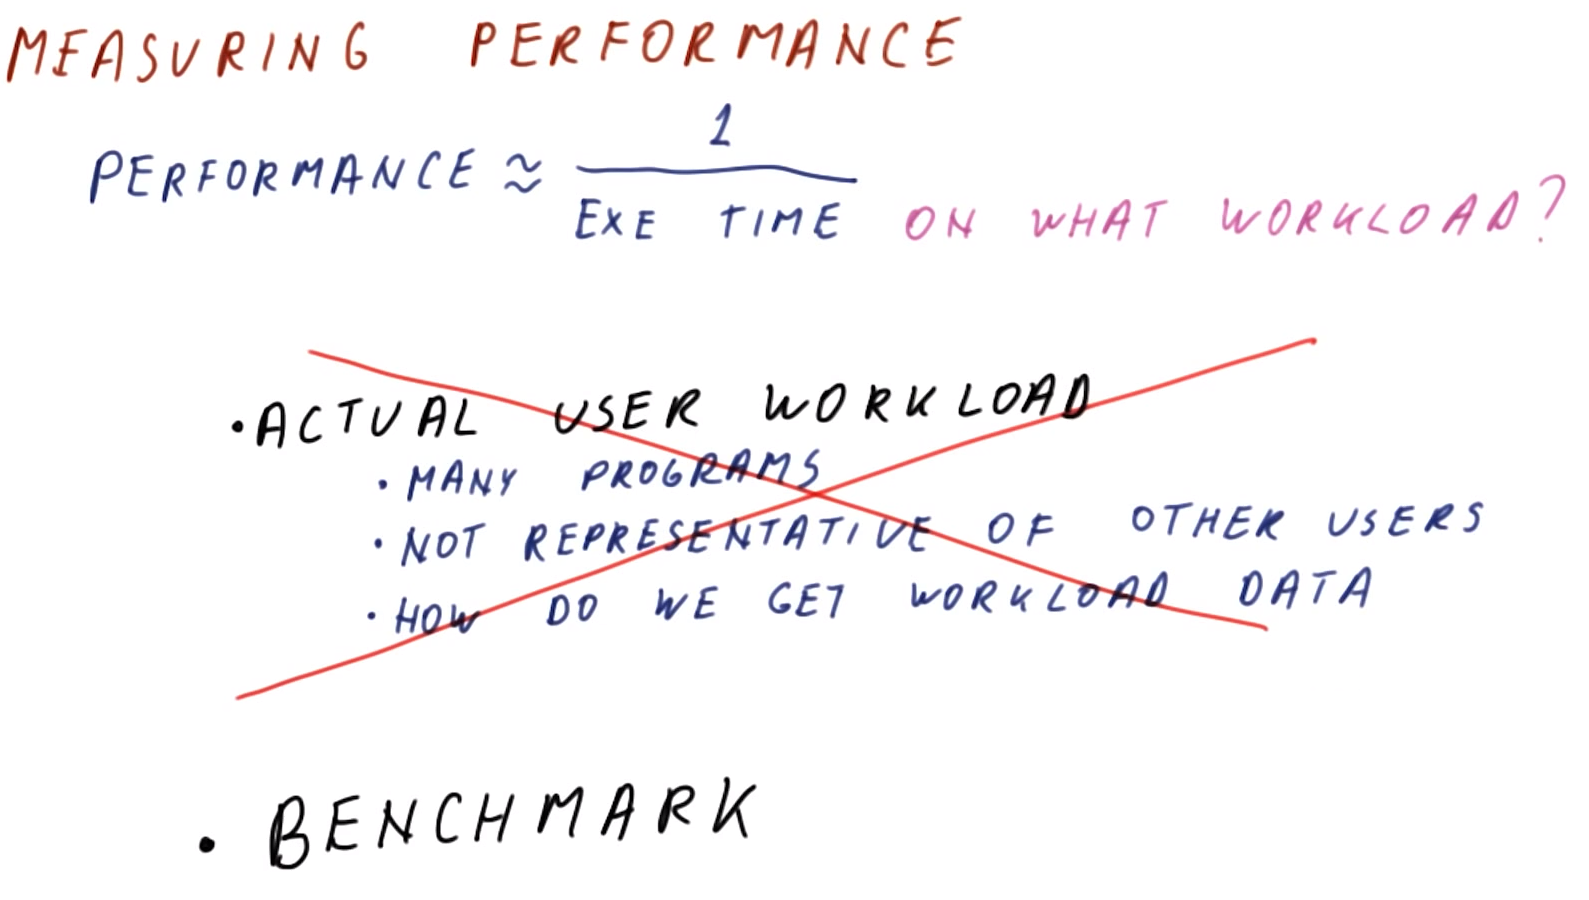 MEASURING PERFORMANCE
PERFORMANCE ≈ 1 / EXE TIME ON WHAT WORKLOAD?
• ACTUAL USER WORKLOAD
• MANY PROGRAMS
• NOT REPRESENTATIVE OF OTHER USERS
• HOW DO WE GET WORKLOAD DATA
• BENCHMARK